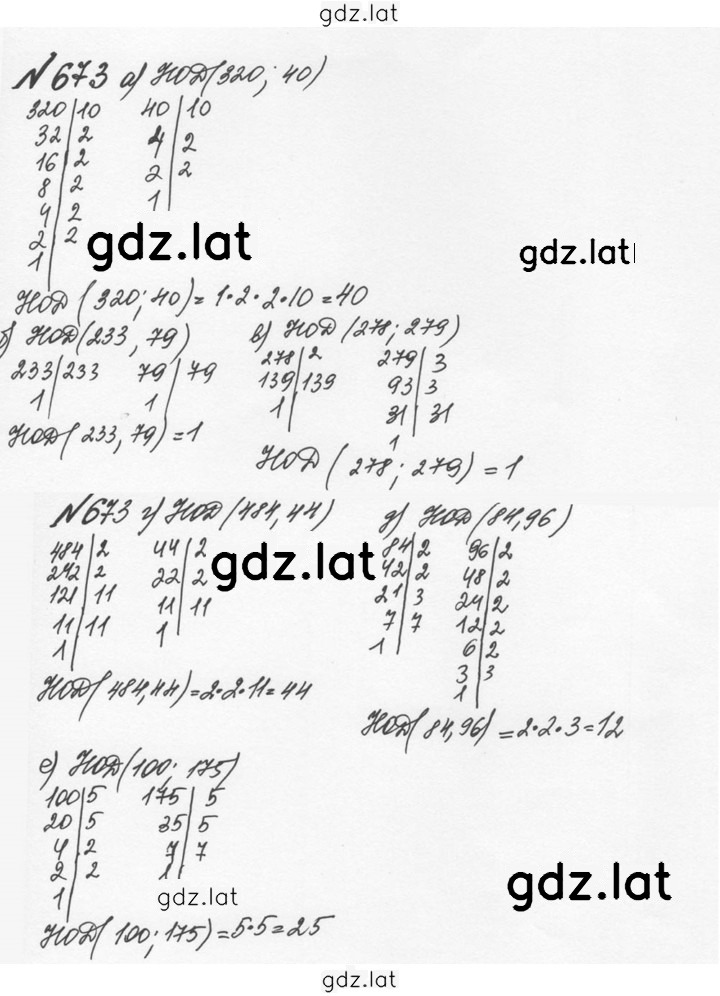 gdz.lat
№673 а) НОД(320; 40)
320|10 40|10
32|2 4|2
16|2 2|2
8|2 1|
4|2
2|2
1|
gdz.lat gdz.lat
НОД(320; 40)=1·2·2·10=40
б) НОД(233, 79) в) НОД(278; 279)
233|233 79|79 278|2 279|3
1| 1| 139|139 93|3
1| 31|31
1
НОД(233, 79)=1
НОД(278; 279)=1
№673 г) НОД(484,44) д) НОД(84,96)
484|2 44|2 84|2 96|2
242|2 22|2 42|2 48|2
121|11 11|11 21|3 24|2
11|11 1| 7|7 12|2
1| 1| 6|2
3|3
1|
gdz.lat
НОД(484,44)=2·2·11=44
НОД(84,96)=2·2·3=12
е) НОД(100; 175)
100|5 175|5
20|5 35|5
4|2 7|7
2|2 1|
1|
gdz.lat gdz.lat
НОД(100; 175)=5·5=25
gdz.lat